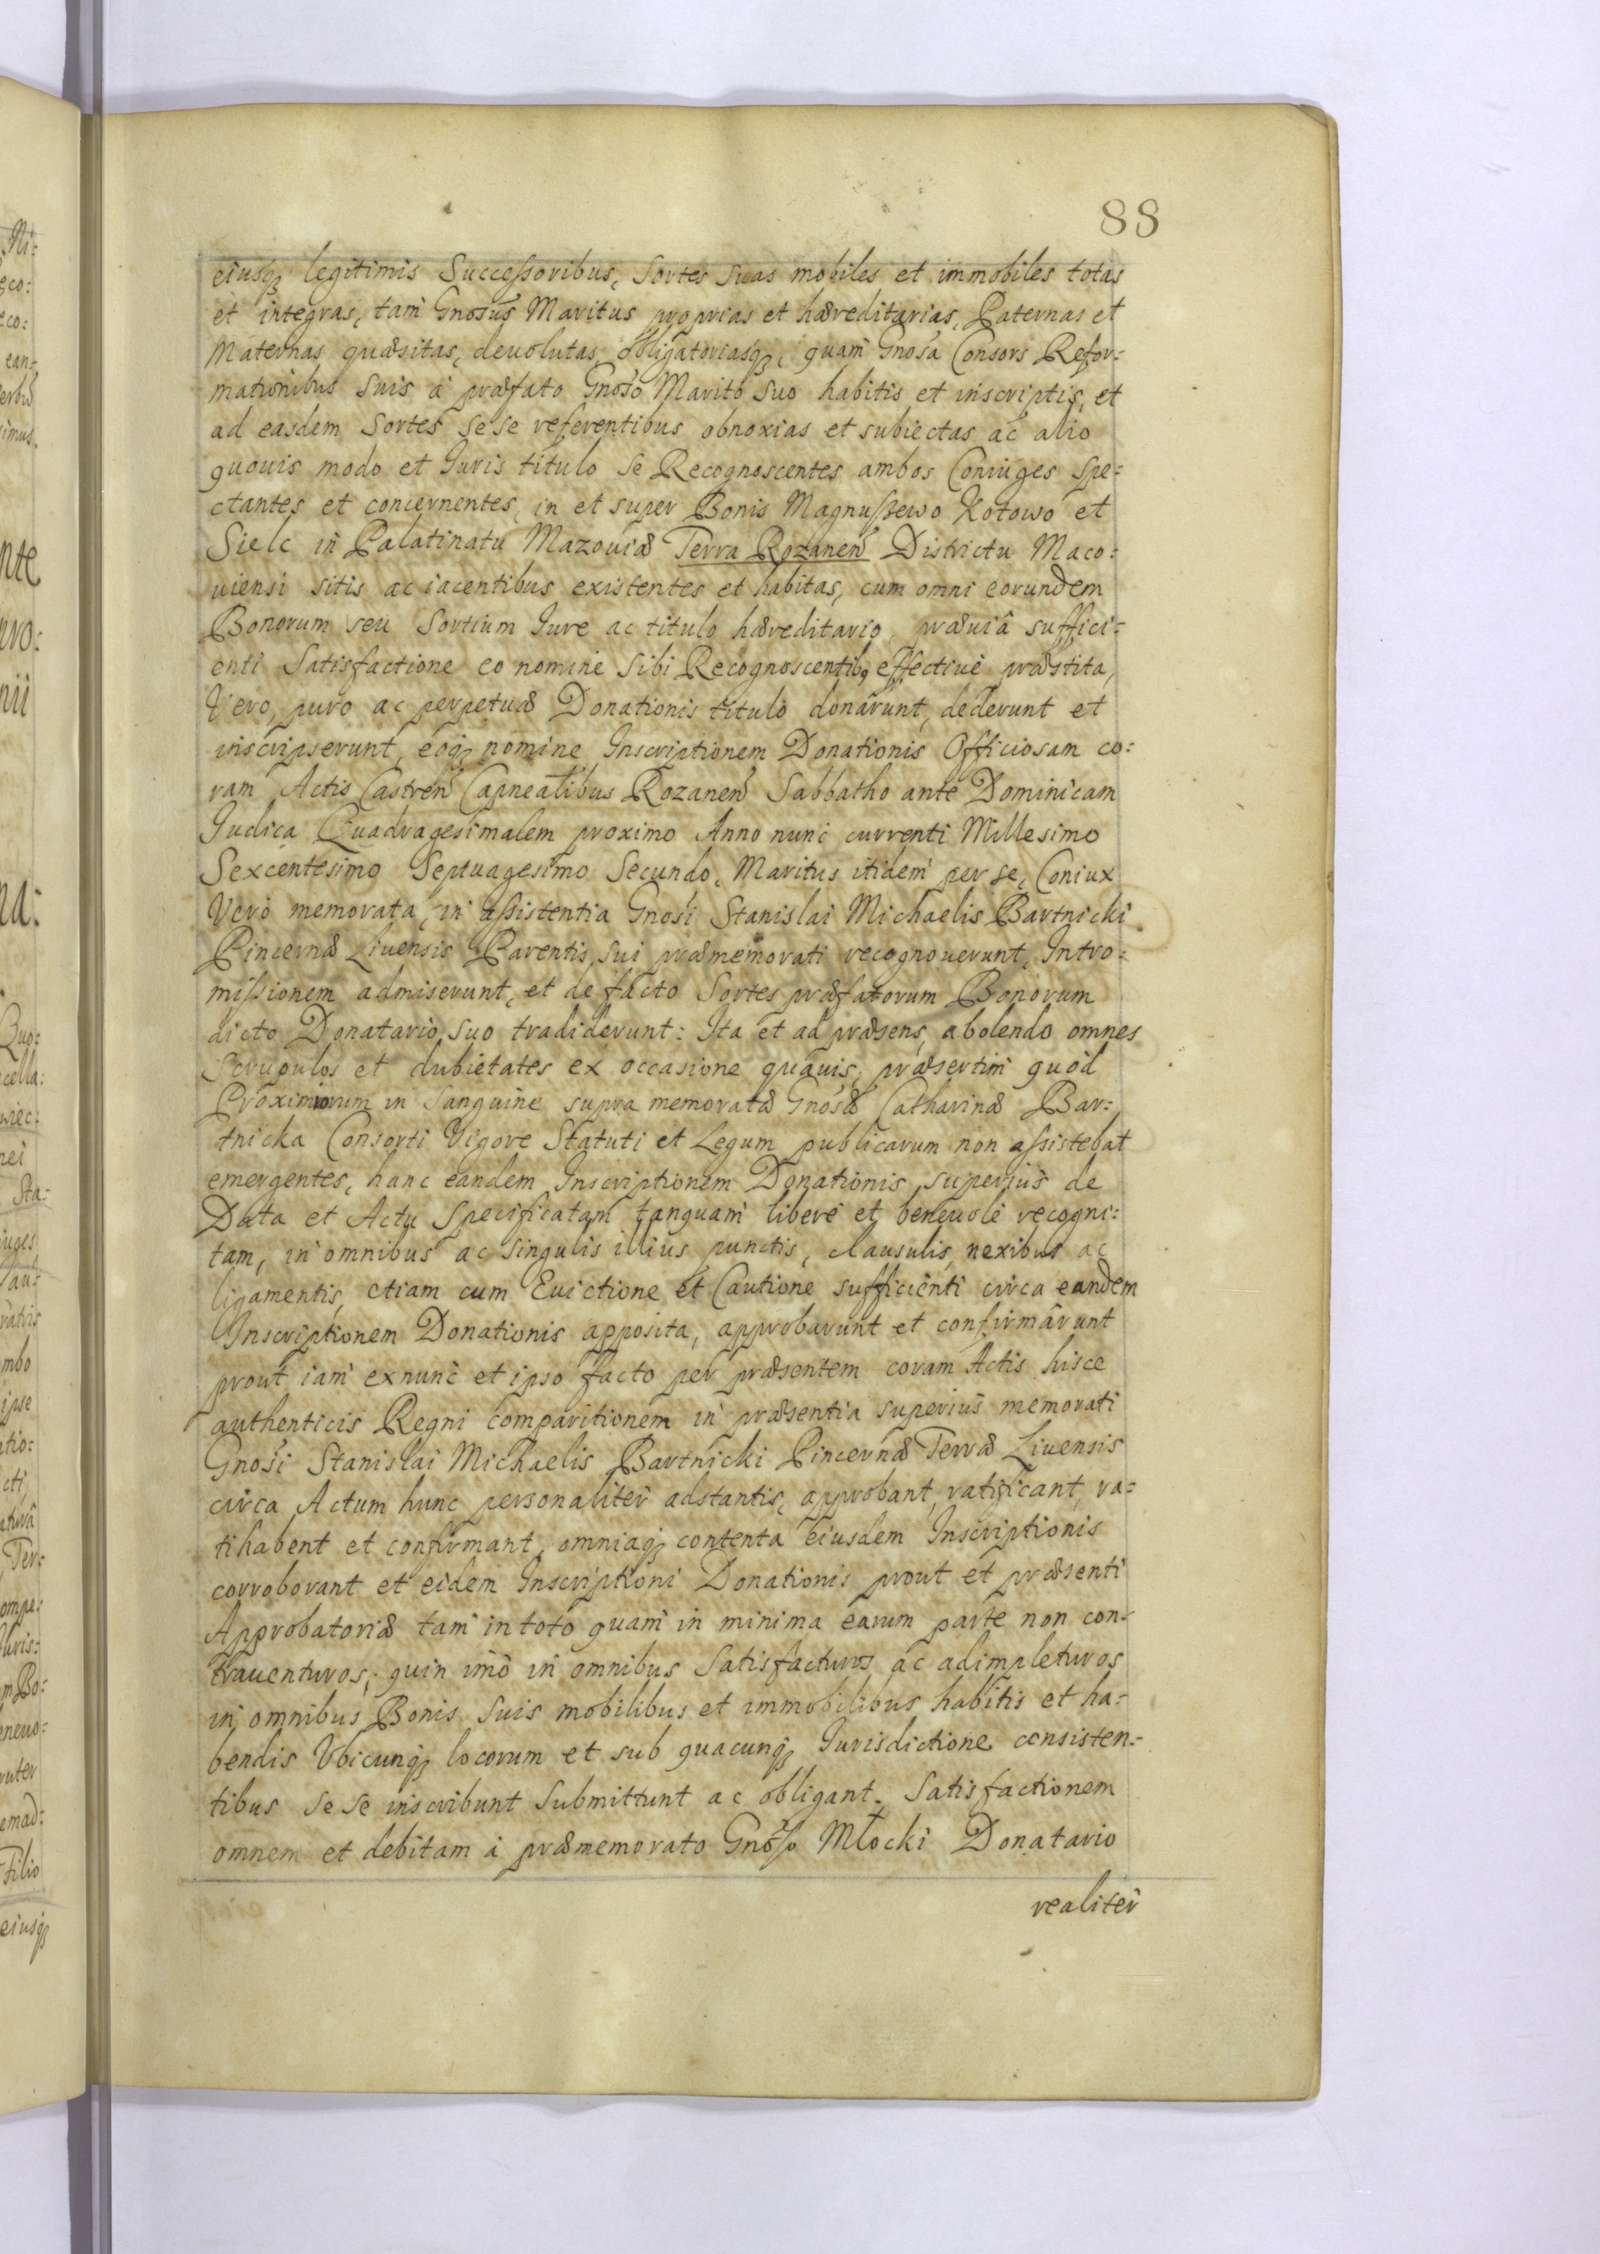 88
eiusq₃ legitimis Successoribus, Sortes suas mobiles et immobiles totas
et integras, tam Gnosus Maritus proprias et hæreditarias, Paternas et
Maternas quæsitas, deuolutas, obligatoriasq₃, quam Gnosa Consors Refor:
mationibus suis à præfato Gnoso Marito suo habitis et inscriptis, et
ad easdem Sortes se se referentibus obnoxias et subiectas ac alio
quouis modo et Iuris titulo se Recognoscentes ambos Coniuges spe:
ctantes et concernentes, in et super Bonis Magnuszewo Kotowo et
Sielc in Palatinatu Mazouiæ Terra Rozanen Districtu Maco:
uiensi sitis ac iacentibus existentes et habitas, cum omni eorundem
Bonorum seu Sortium Iure ac titulo hæreditario, præuiâ suffici:
enti Satisfactione eo nomine sibi Recognoscentib₉ effectiuè præstita,
Vero, puro ac perpetuæ Donationis titulo donârunt, dederunt et
inscripserunt, eoq₃ nomine Inscriptionem Donationis Officiosam co:
ram Actis Castren Capnealibus Rozanen Sabbatho ante Dominicam
Iudica Quadragesimalem proximo Anno nunc currenti Millesimo
Sexcentesimo Septuagesimo Secundo, Maritus itidem per se, Coniux
Vero memorata, in assistentia Gnosi Stanislai Michaelis Bartnicki
Pincernæ Liuensis Parentis sui præmemorati recognouerunt, Intro:
missionem admiserunt, et de facto Sortes præfatorum Bonorum
dicto Donatario suo tradiderunt: Ita et ad præsens, abolendo omnes
Scrupulos et dubietates ex occasione quâuis, præsertim quòd
Proximiorum in Sanguine supra memoratæ Gnosæ Catharinæ Bar:
tnicka Consorti Vigore Statuti et Legum publicarum non assistebat
emergentes, hanc eandem Inscriptionem Donationis superius de
Data et Actu Specificatam tanquam liberè et beneuolè recogni:
tam, in omnibus ac singulis illius punctis, clausulis, nexibus ac
ligamentis, etiam cum Euictione et Cautione sufficienti circa eandem
Inscriptionem Donationis apposita, approbarunt et confirmârunt
prout iam exnunc et ipso facto per præsentem coram Actis hisce
authenticis Regni comparitionem in præsentia superius memorati
Gnosi Stanislai Michaelis Bartnicki Pincernæ Terræ Liuensis
circa Actum hunc personaliter adstantis, approbant, ratificant, ra:
tihabent et confirmant, omniaq₃ contenta eiusdem Inscriptionis
corroborant et eidem Inscriptioni Donationis prout et præsenti
Approbatoriæ tam in toto quam in minima earum parte non con:
trauenturos, quin imò in omnibus Satisfacturos ac adimpleturos
in omnibus Bonis suis mobilibus et immobilibus habitis et ha:
bendis Vbicunq₃ locorum et sub quacunq₃ Iurisdictione consisten:
tibus se se inscribunt submittunt ac obligant. Satisfactionem
omnem et debitam à præmemorato Gnoso Młocki Donatario
realiter